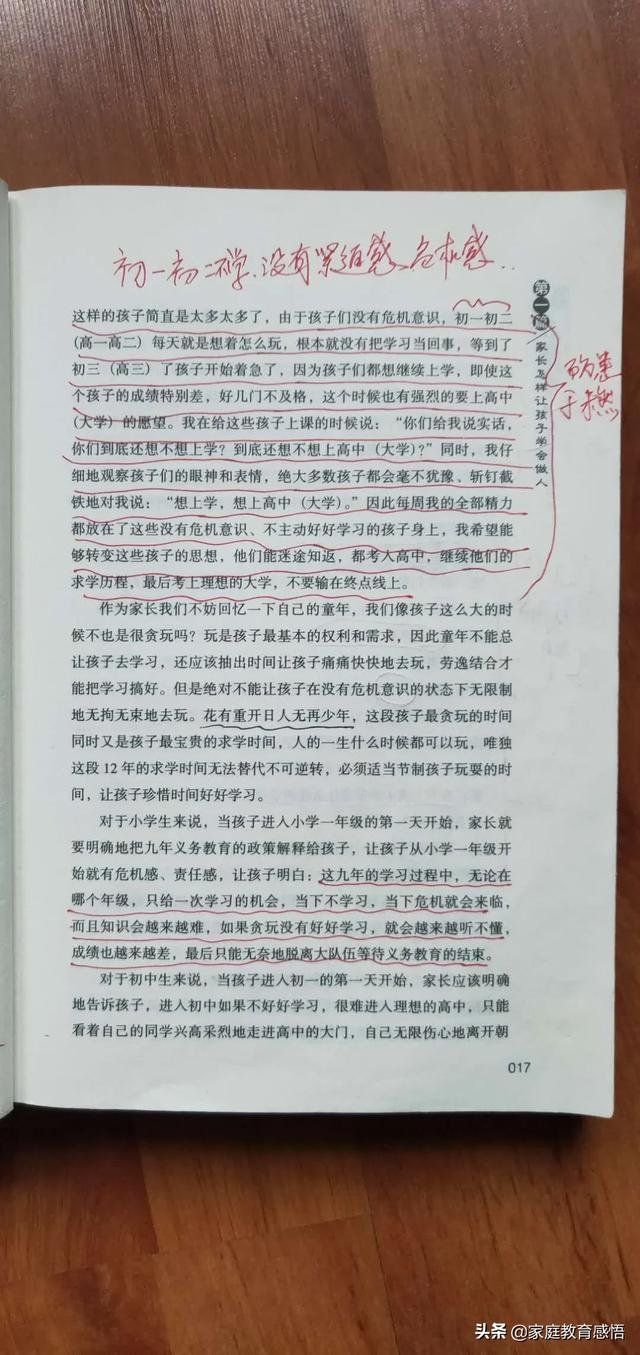 初一初二学.没有紧迫感、危机感..
第一篇 家长怎样让孩子学会做人
这样的孩子简直是太多太多了，由于孩子们没有危机意识，初一初二
（高一高二）每天就是想着怎么玩，根本就没有把学习当回事，等到了
初三（高三）了孩子开始着急了，因为孩子们都想继续上学，即使这
个孩子的成绩特别差，好几门不及格，这个时候也有强烈的要上高中
（大学）的愿望。我在给这些孩子上课的时候说：“你们给我说实话，
你们到底还想不想上学？到底还想不想上高中（大学）？”同时，我仔
细地观察孩子们的眼神和表情，绝大多数孩子都会毫不犹豫、斩钉截
铁地对我说：“想上学，想上高中（大学）。”因此每周我的全部精力
都放在了这些没有危机意识、不主动好好学习的孩子身上，我希望能
够转变这些孩子的思想，他们能迷途知返，都考入高中，继续他们的
求学历程，最后考上理想的大学，不要输在终点线上。
作为家长我们不妨回忆一下自己的童年，我们像孩子这么大的时
候不也是很贪玩吗？玩是孩子最基本的权利和需求，因此童年不能总
让孩子去学习，还应该抽出时间让孩子痛痛快快地去玩，劳逸结合才
能把学习搞好。但是绝对不能让孩子在没有危机意识的状态下无限制
地无拘无束地去玩。花有重开日人无再少年，这段孩子最贪玩的时间
同时又是孩子最宝贵的求学时间，人的一生什么时候都可以玩，唯独
这段 12 年的求学时间无法替代不可逆转，必须适当节制孩子玩耍的时
间，让孩子珍惜时间好好学习。
对于小学生来说，当孩子进入小学一年级的第一天开始，家长就
要明确地把九年义务教育的政策解释给孩子，让孩子从小学一年级开
始就有危机感、责任感，让孩子明白：这九年的学习过程中，无论在
哪个年级，只给一次学习的机会，当下不学习，当下危机就会来临，
而且知识会越来越难，如果贪玩没有好好学习，就会越来越听不懂，
成绩也越来越差，最后只能无奈地脱离大队伍等待义务教育的结束。
对于初中生来说，当孩子进入初一的第一天开始，家长应该明确
地告诉孩子，进入初中如果不好好学习，很难进入理想的高中，只能
看着自己的同学兴高采烈地走进高中的大门，自己无限伤心地离开朝
017
头条 @家庭教育感悟